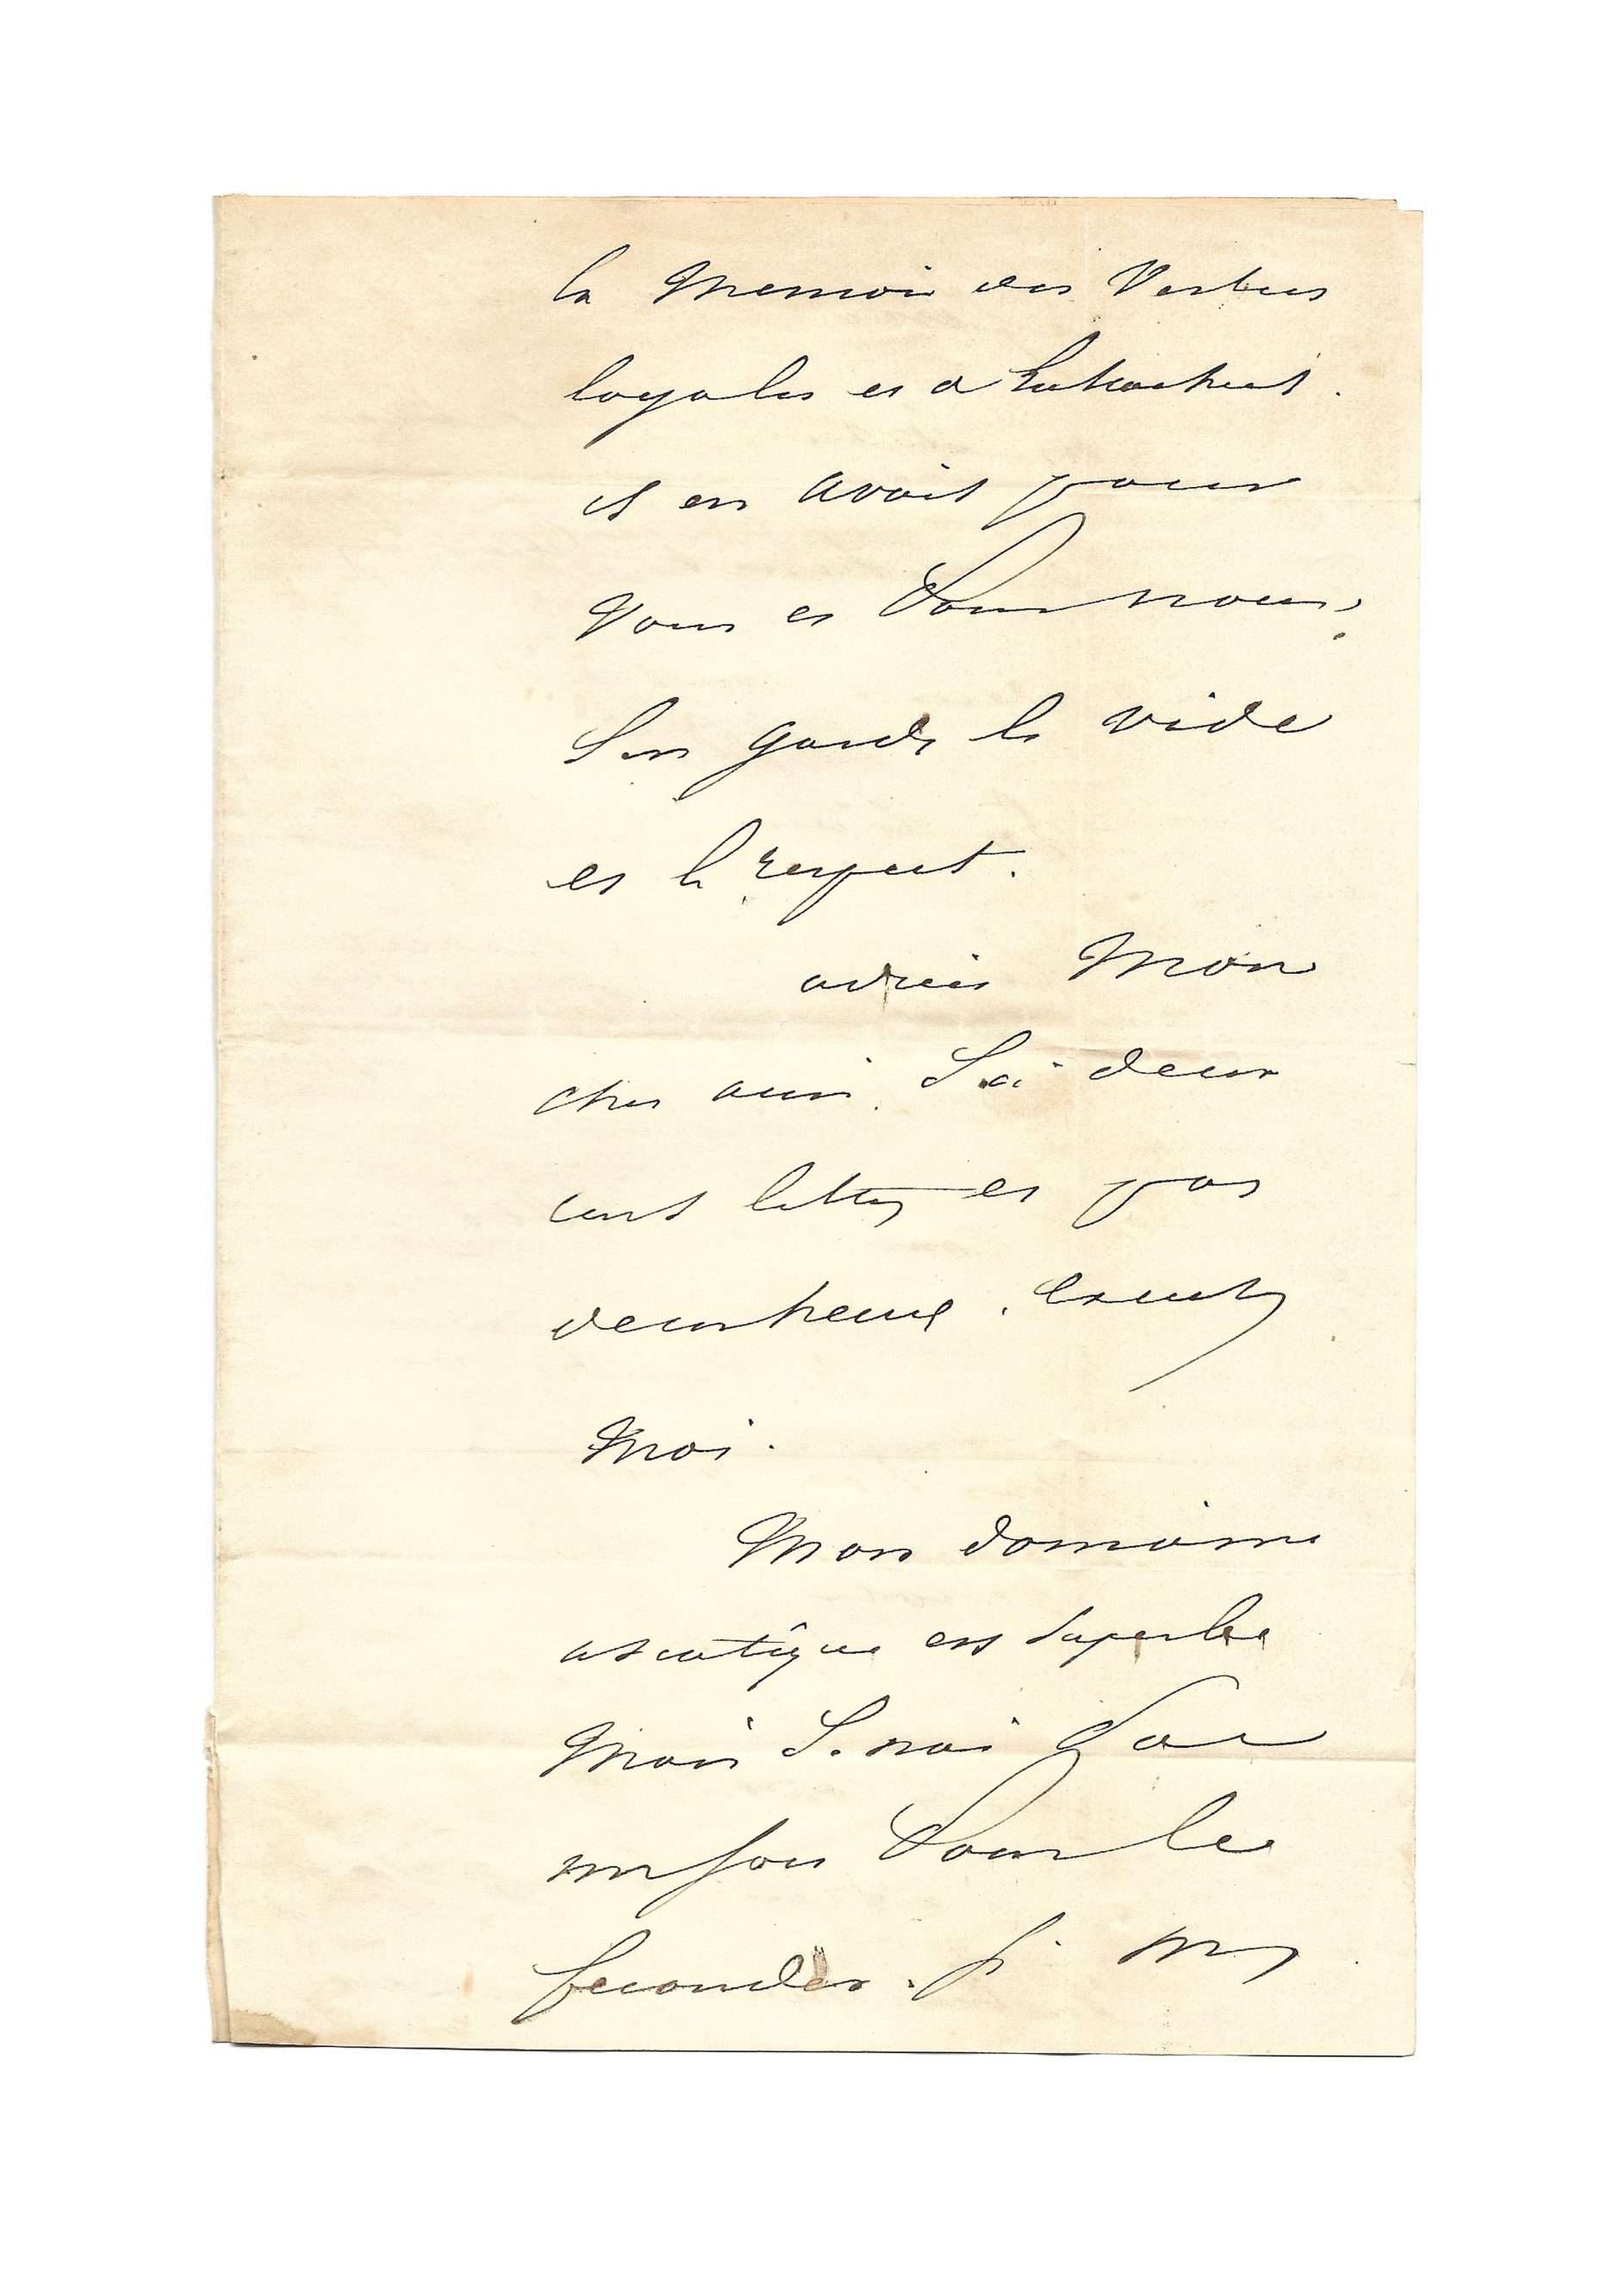 la Memoire des Vertus
loyales et d'attachement.
il en avait pour
Vous et Pour nous,
J'en garde le vide
et le respect.
adieu Mon
cher ami. J'ai deux
cent lettres et pas
deux heures. Excusez
Moi.
Mon domaine
asiatique est Superbe
Mais Je n'ai Pas
un sou Pour le
feconder. Si